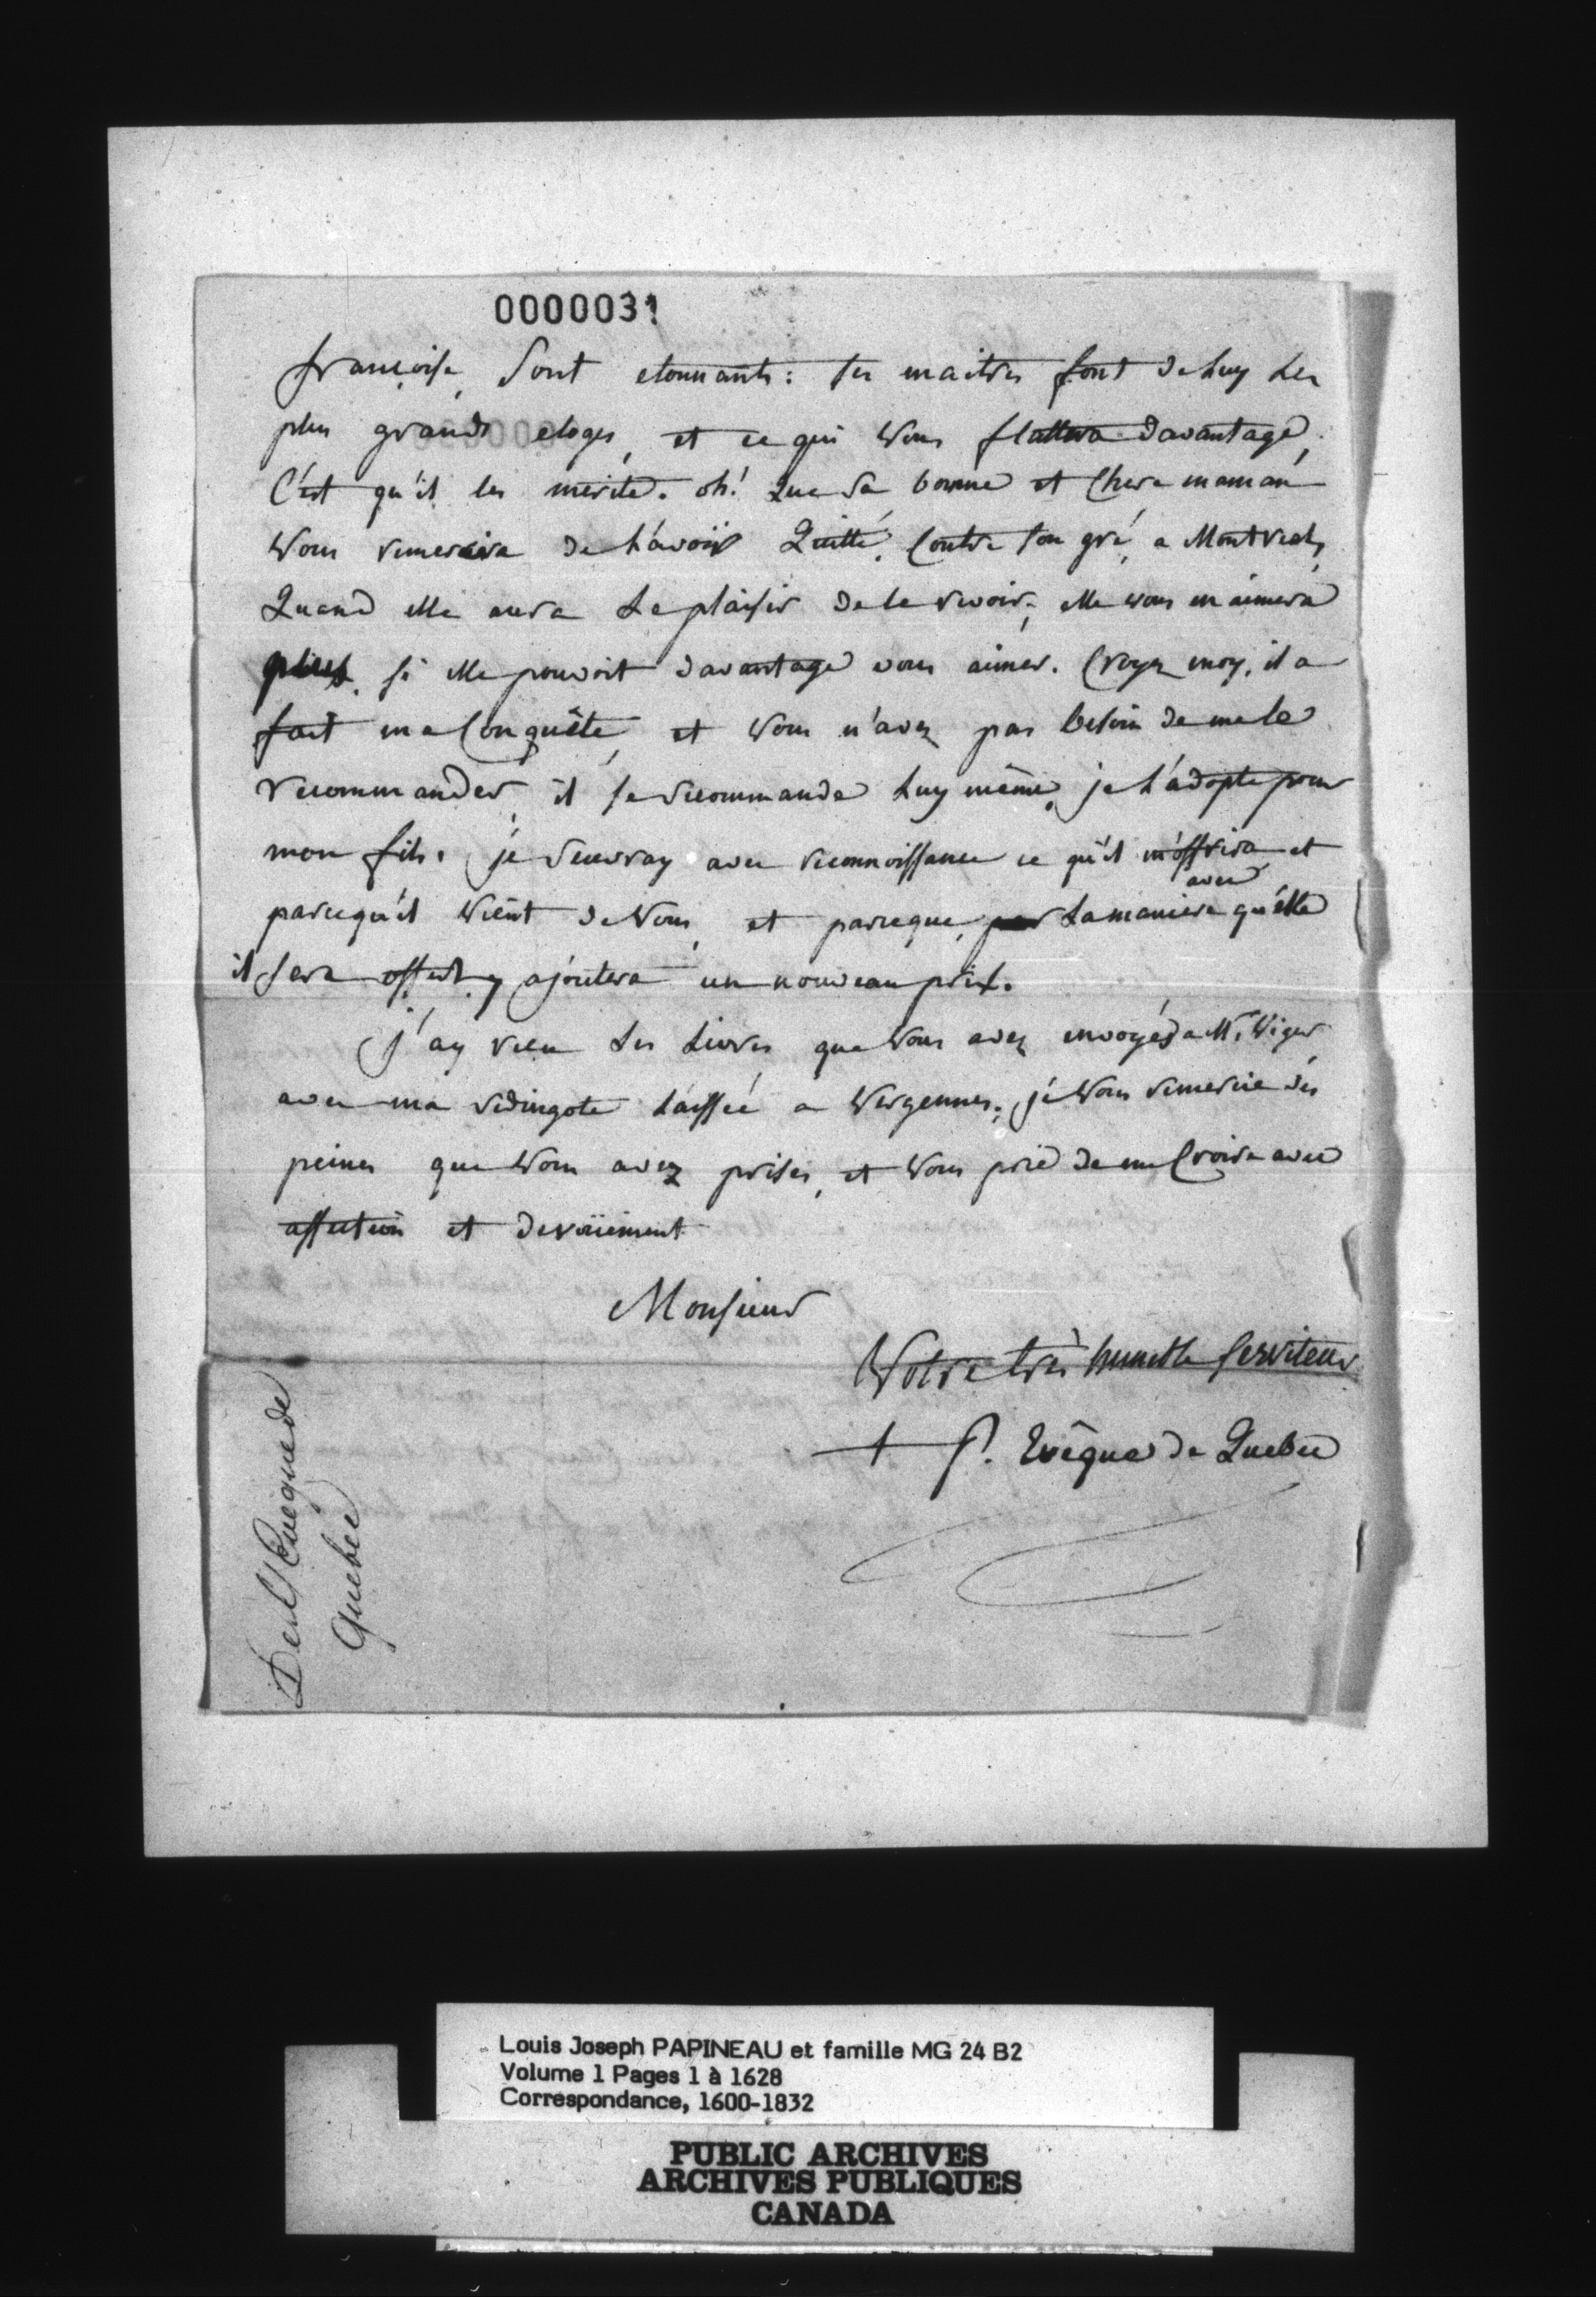 0000031
françoise, sont etonnants: ses maitres font de luy les
plus grands eloges, et ce qui vous flattera davantage,
C'est qu'il les merite. oh! Que sa bonne et Chere maman
vous remerciera de l'avoir Quitté, Contre son gré, a Montreal,
Quand elle aura le plaisir de le revoir; elle vous en aimera
plus, si elle pouvoit davantage vous aimer. Croyez moy, il a
fait ma Conquête, et vous n'avez pas besoin de me le
recommander, il se recommande luy même, je l'adopte pour
mon fils. je recevray avec reconnoissance ce qu'il m'offrira, et
avec
parcequ'il vient de vous, et parceque, la maniere qu'elle
il sera offert y ajoutera un nouveau prix.
j'ay recu les livres que vous avez envoyés a Mr. Viger
avec ma redingote laissée a Vergennes. je vous remercie des
peines que vous avez prises, et vous prie de me Croire avec
affection et devoüement
Monsieur
Votre très humble serviteur
+ P. Evêque de Quebec
De l'Eveque de
Quebec
Louis Joseph PAPINEAU et famille MG 24 B2
Volume 1 Pages 1 à 1628
Correspondance, 1600-1832
PUBLIC ARCHIVES
ARCHIVES PUBLIQUES
CANADA